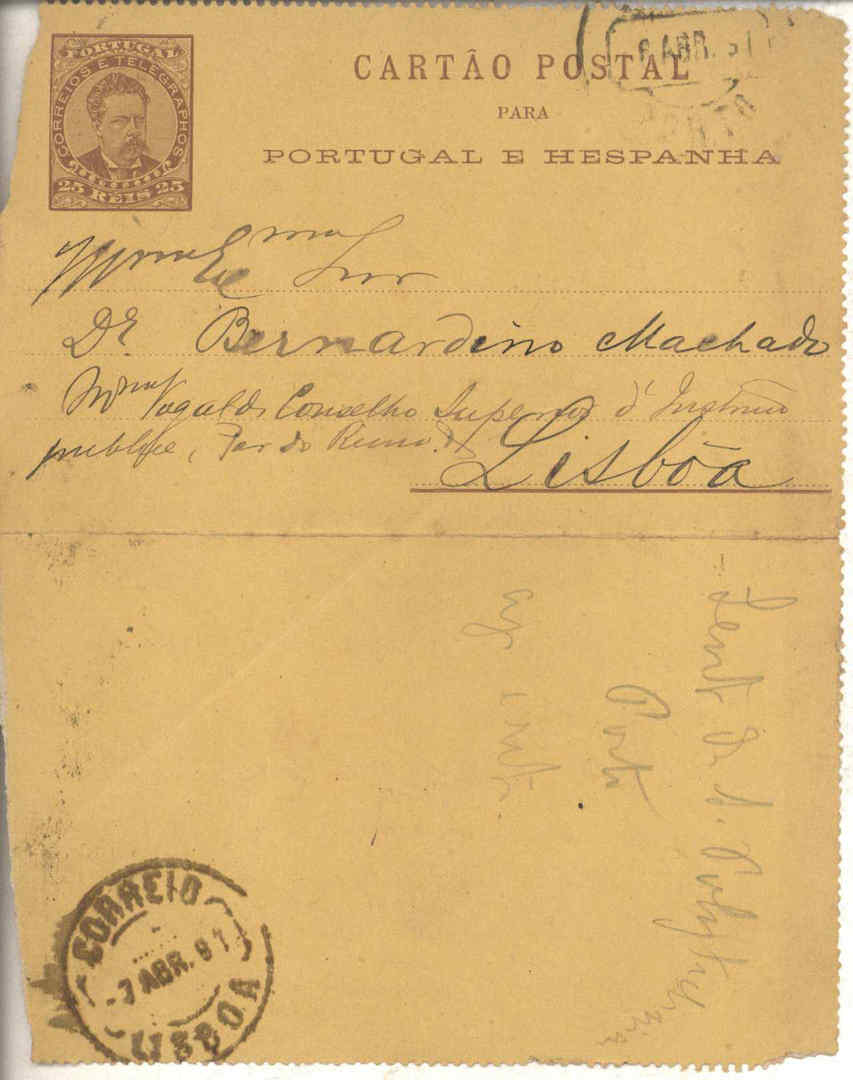 PORTUGAL
CORREIOS E TELEGRAPHOS
25 REIS 25
CARTÃO POSTAL
PARA
PORTUGAL E HESPANHA
6 ABR. 91
PORTO
Illmo Exmo Snr
Dr. Bernardino Machado
Vogal do Conselho Superior d'Instrução
publica, Par do Reino &
Lisbôa
Lente da A. Polytechnica
Porto
CORREIO
-7 ABR. 91
LISBOA